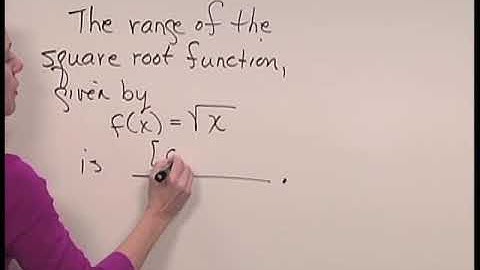 The range of the
square root function,
given by
f(x) = √x
is [ .